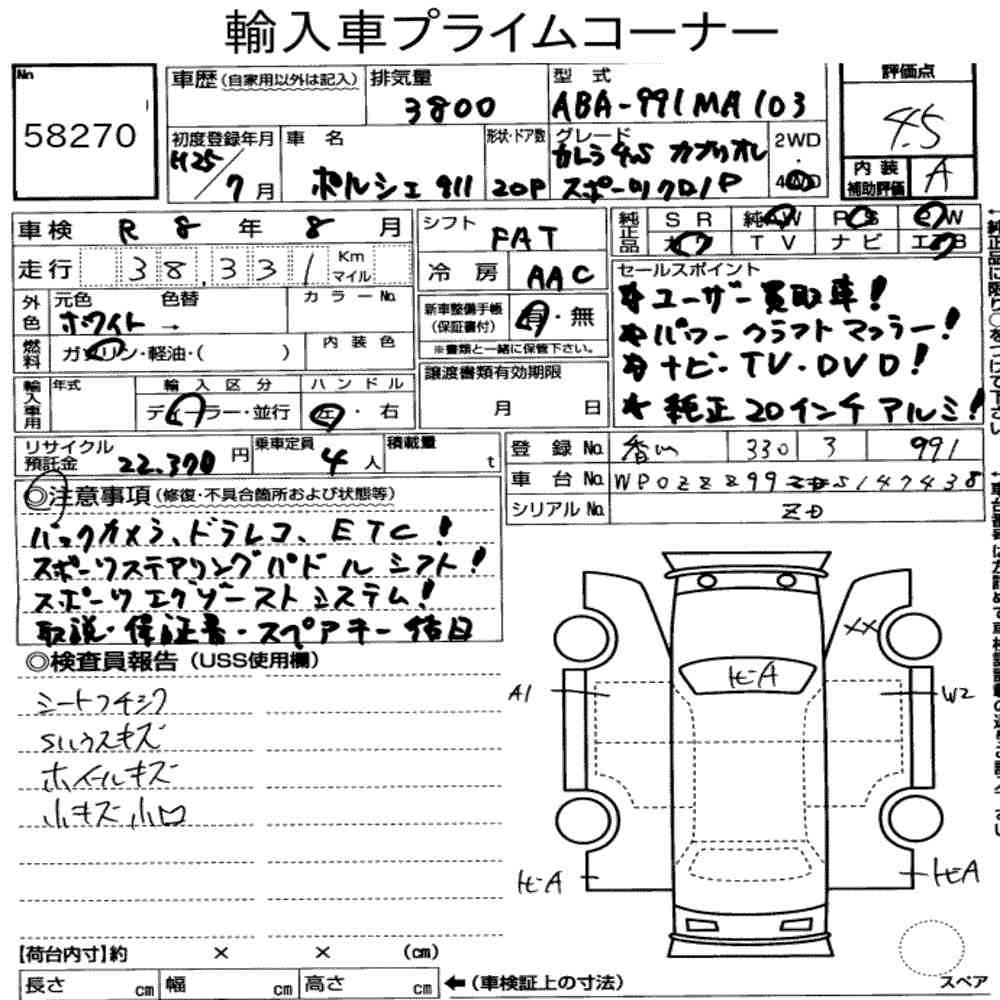 輸入車プライムコーナー
No 58270
車歴(自家用以外は記入)
排気量 3800
型式 ABA-991MA103
評価点 4.5
初度登録年月 H25/7月
車名 ポルシェ911
形状・ドア数 2OP
グレード カレラ4S カブリオレ スポーツクロノP
2WD・4WD
内装補助評価 A
車検 R8年8月
走行 38,331 Km マイル
外色 元色 ホワイト → 色替
カラーNo.
燃料 ガソリン・軽油・( )
内装色
輸入車用 年式
輸入区分 ディーラー・並行
ハンドル 左・右
シフト FAT
冷房 AAC
新車整備手帳(保証書付) 有・無
※書類と一緒に保管下さい。
譲渡書類有効期限
月 日
純正品 SR 純AW PS PW
カワ TV ナビ エアB
セールスポイント
★ユーザー買取車!
★パワークラフトマフラー!
★ナビ・TV・DVD!
★純正20インチアルミ!
リサイクル預託金 22,370円
乗車定員 4人
積載量 t
登録No. 香川 330 3 991
車台No. WP0ZZZ99ZDS147438
シリアルNo. ZD
◎注意事項(修復・不具合箇所および状態等)
バックカメラ、ドラレコ、ETC!
スポーツステアリングパドルシフト!
スポーツエグゾーストシステム!
取説・保証書・スペアキー 後日
◎検査員報告(USS使用欄)
シートフチシワ
Sルウスキズ
ホイールキズ
小キズ 小凹
××
ヒA
A1
W2
ヒA
ヒA
【荷台内寸】約 × × (cm)
長さ cm 幅 cm 高さ cm ←(車検証上の寸法)
スペア